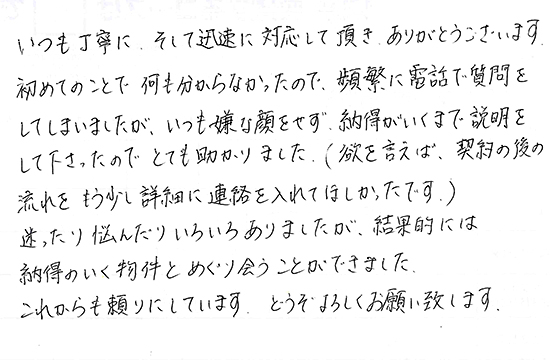 いつも丁寧に、そして迅速に対応して頂き、ありがとうございます。
初めてのことで何も分からなかったので、頻繁に電話で質問を
してしまいましたが、いつも嫌な顔をせず、納得がいくまで説明を
して下さったのでとても助かりました。(欲を言えば、契約の後の
流れをもう少し詳細に連絡を入れてほしかったです。)
迷ったり悩んだりいろいろありましたが、結果的には
納得のいく物件とめぐり会うことができました。
これからも頼りにしています。どうぞよろしくお願い致します。